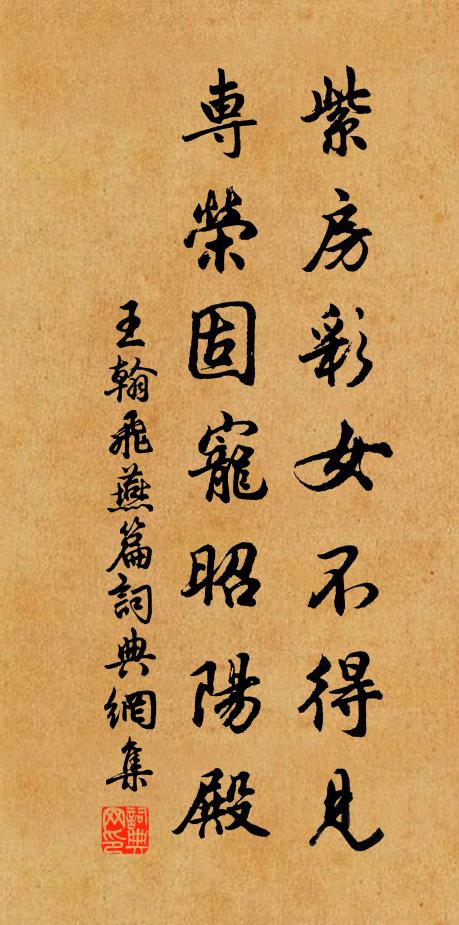 紫房彩女不得見
専榮固寵昭陽殿
王翰飛燕篇詞典網集
詞典网印